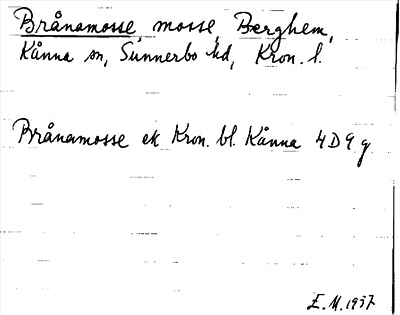 Brånamosse, mosse, Berghem,
Kånna sn, Sunnerbo hd, Kron. l.
Brånamosse ek Kron. bl. Kånna 4D9g
E.M. 1937